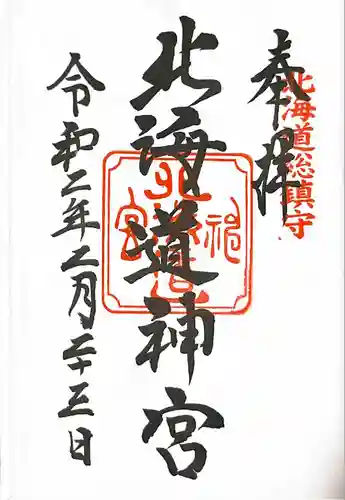 奉拝
北海道総鎮守
北海道神宮
令和二年二月二十三日